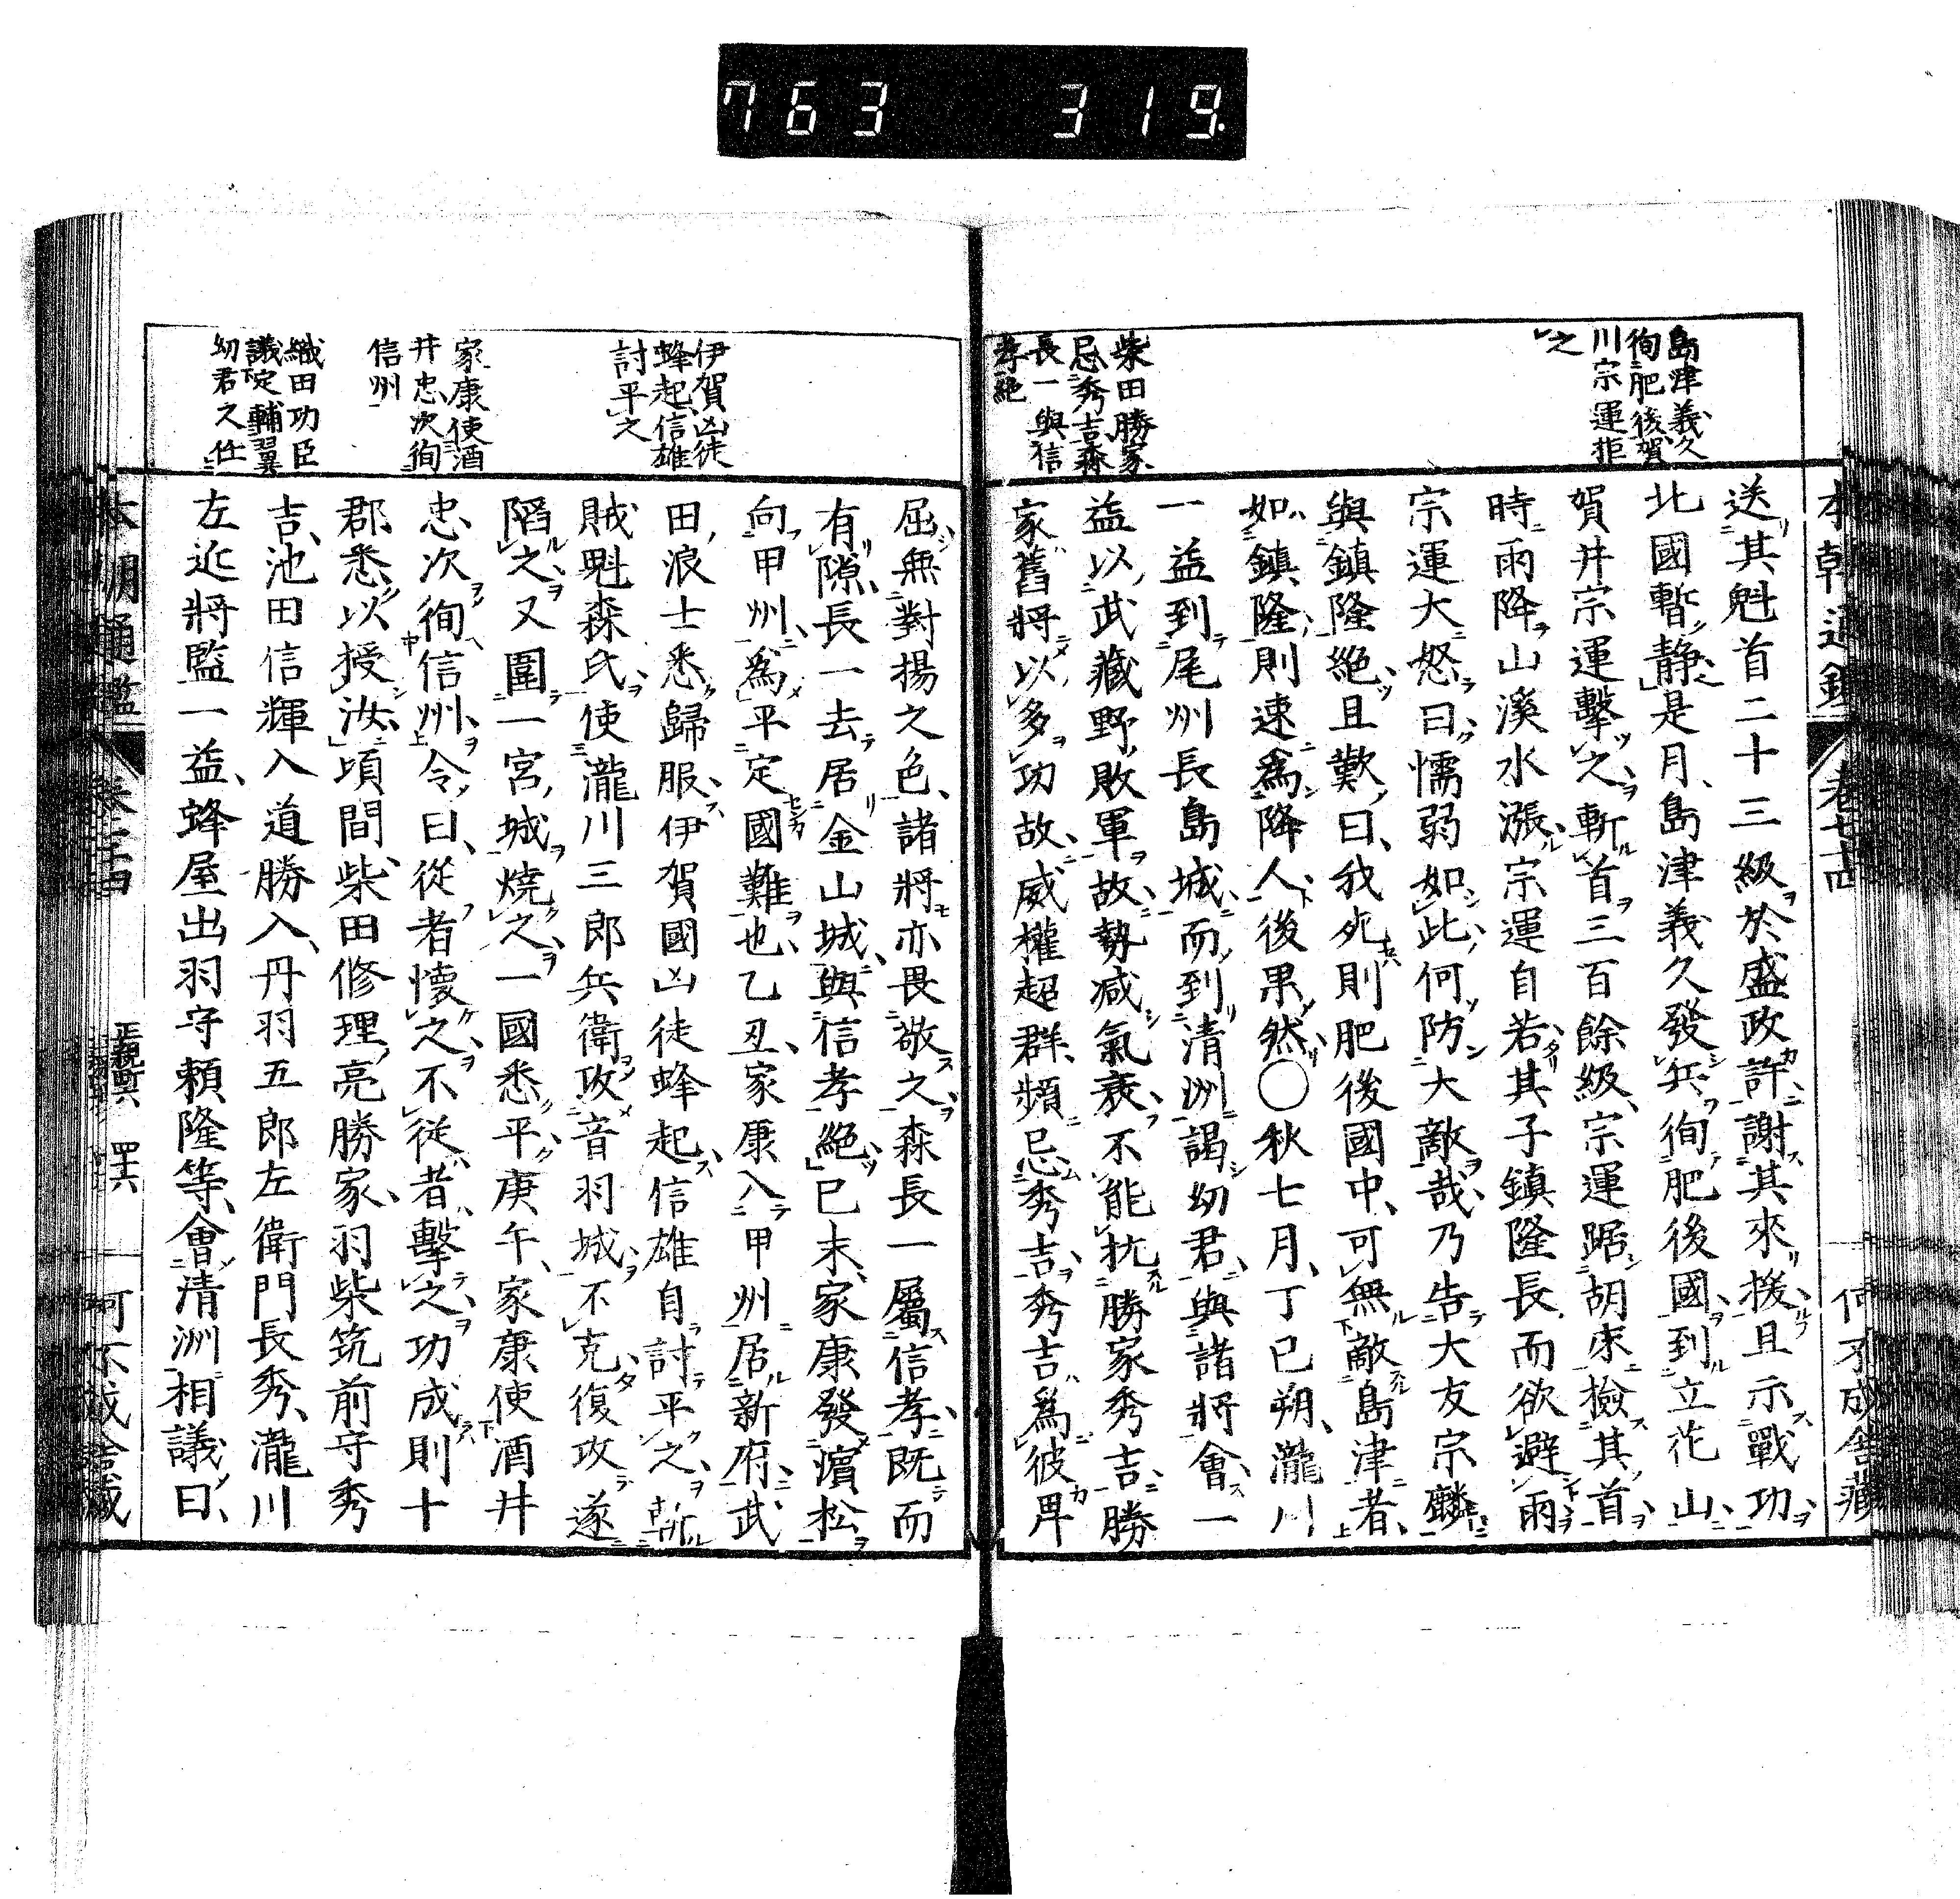 763 319.
島津義久
徇肥後賀
川宗運拒
之
柴田勝家
忌秀吉森
長一與信
孝絶
送其魁首二十三級於盛政許謝其來援且示戰功
北國暫静是月島津義久發兵徇肥後國到立花山
賀井宗運擊之斬首三百餘級宗運踞胡床檢其首
時雨降山溪水漲宗運自若其子鎮隆長而欲避雨
宗運大怒曰懦弱如此何防大敵哉乃告大友宗麟
與鎮隆絶且歎曰我死則肥後國中可無敵島津者
如鎮隆則速爲降人後果然〇秋七月丁巳朔瀧川
一益到尾州長島城而到清洲謁幼君與諸將會一
益以武藏野敗軍故勢減氣衰不能抗勝家秀吉勝
家舊將以多功故威權超群頻忌秀吉秀吉爲彼畀
伊賀凶徒
蜂起信雄
討平之
家康使酒
井忠次徇
信州
織田功臣
議定輔翼
幼君之仕
屈無對揚之色諸將亦畏敬之森長一屬信孝既而
有隙長一去居金山城與信孝絶已末家康發濵松
向甲州爲平定國難也乙丑家康入甲州居新府武
田浪士悉歸服伊賀國凶徒蜂起信雄自討平之斬
賊魁森氏使瀧川三郎兵衛攻音羽城不克復攻遂
陷之又圍一宮城燒之一國悉平庚午家康使酒井
忠次徇信州令曰從者懷之不從者擊之功成則十
郡悉以授汝頃間柴田修理亮勝家羽柴筑前守秀
吉池田信輝入道勝入丹羽五郎左衛門長秀瀧川
左近將監一益蜂屋出羽守頼隆等會清洲相議曰